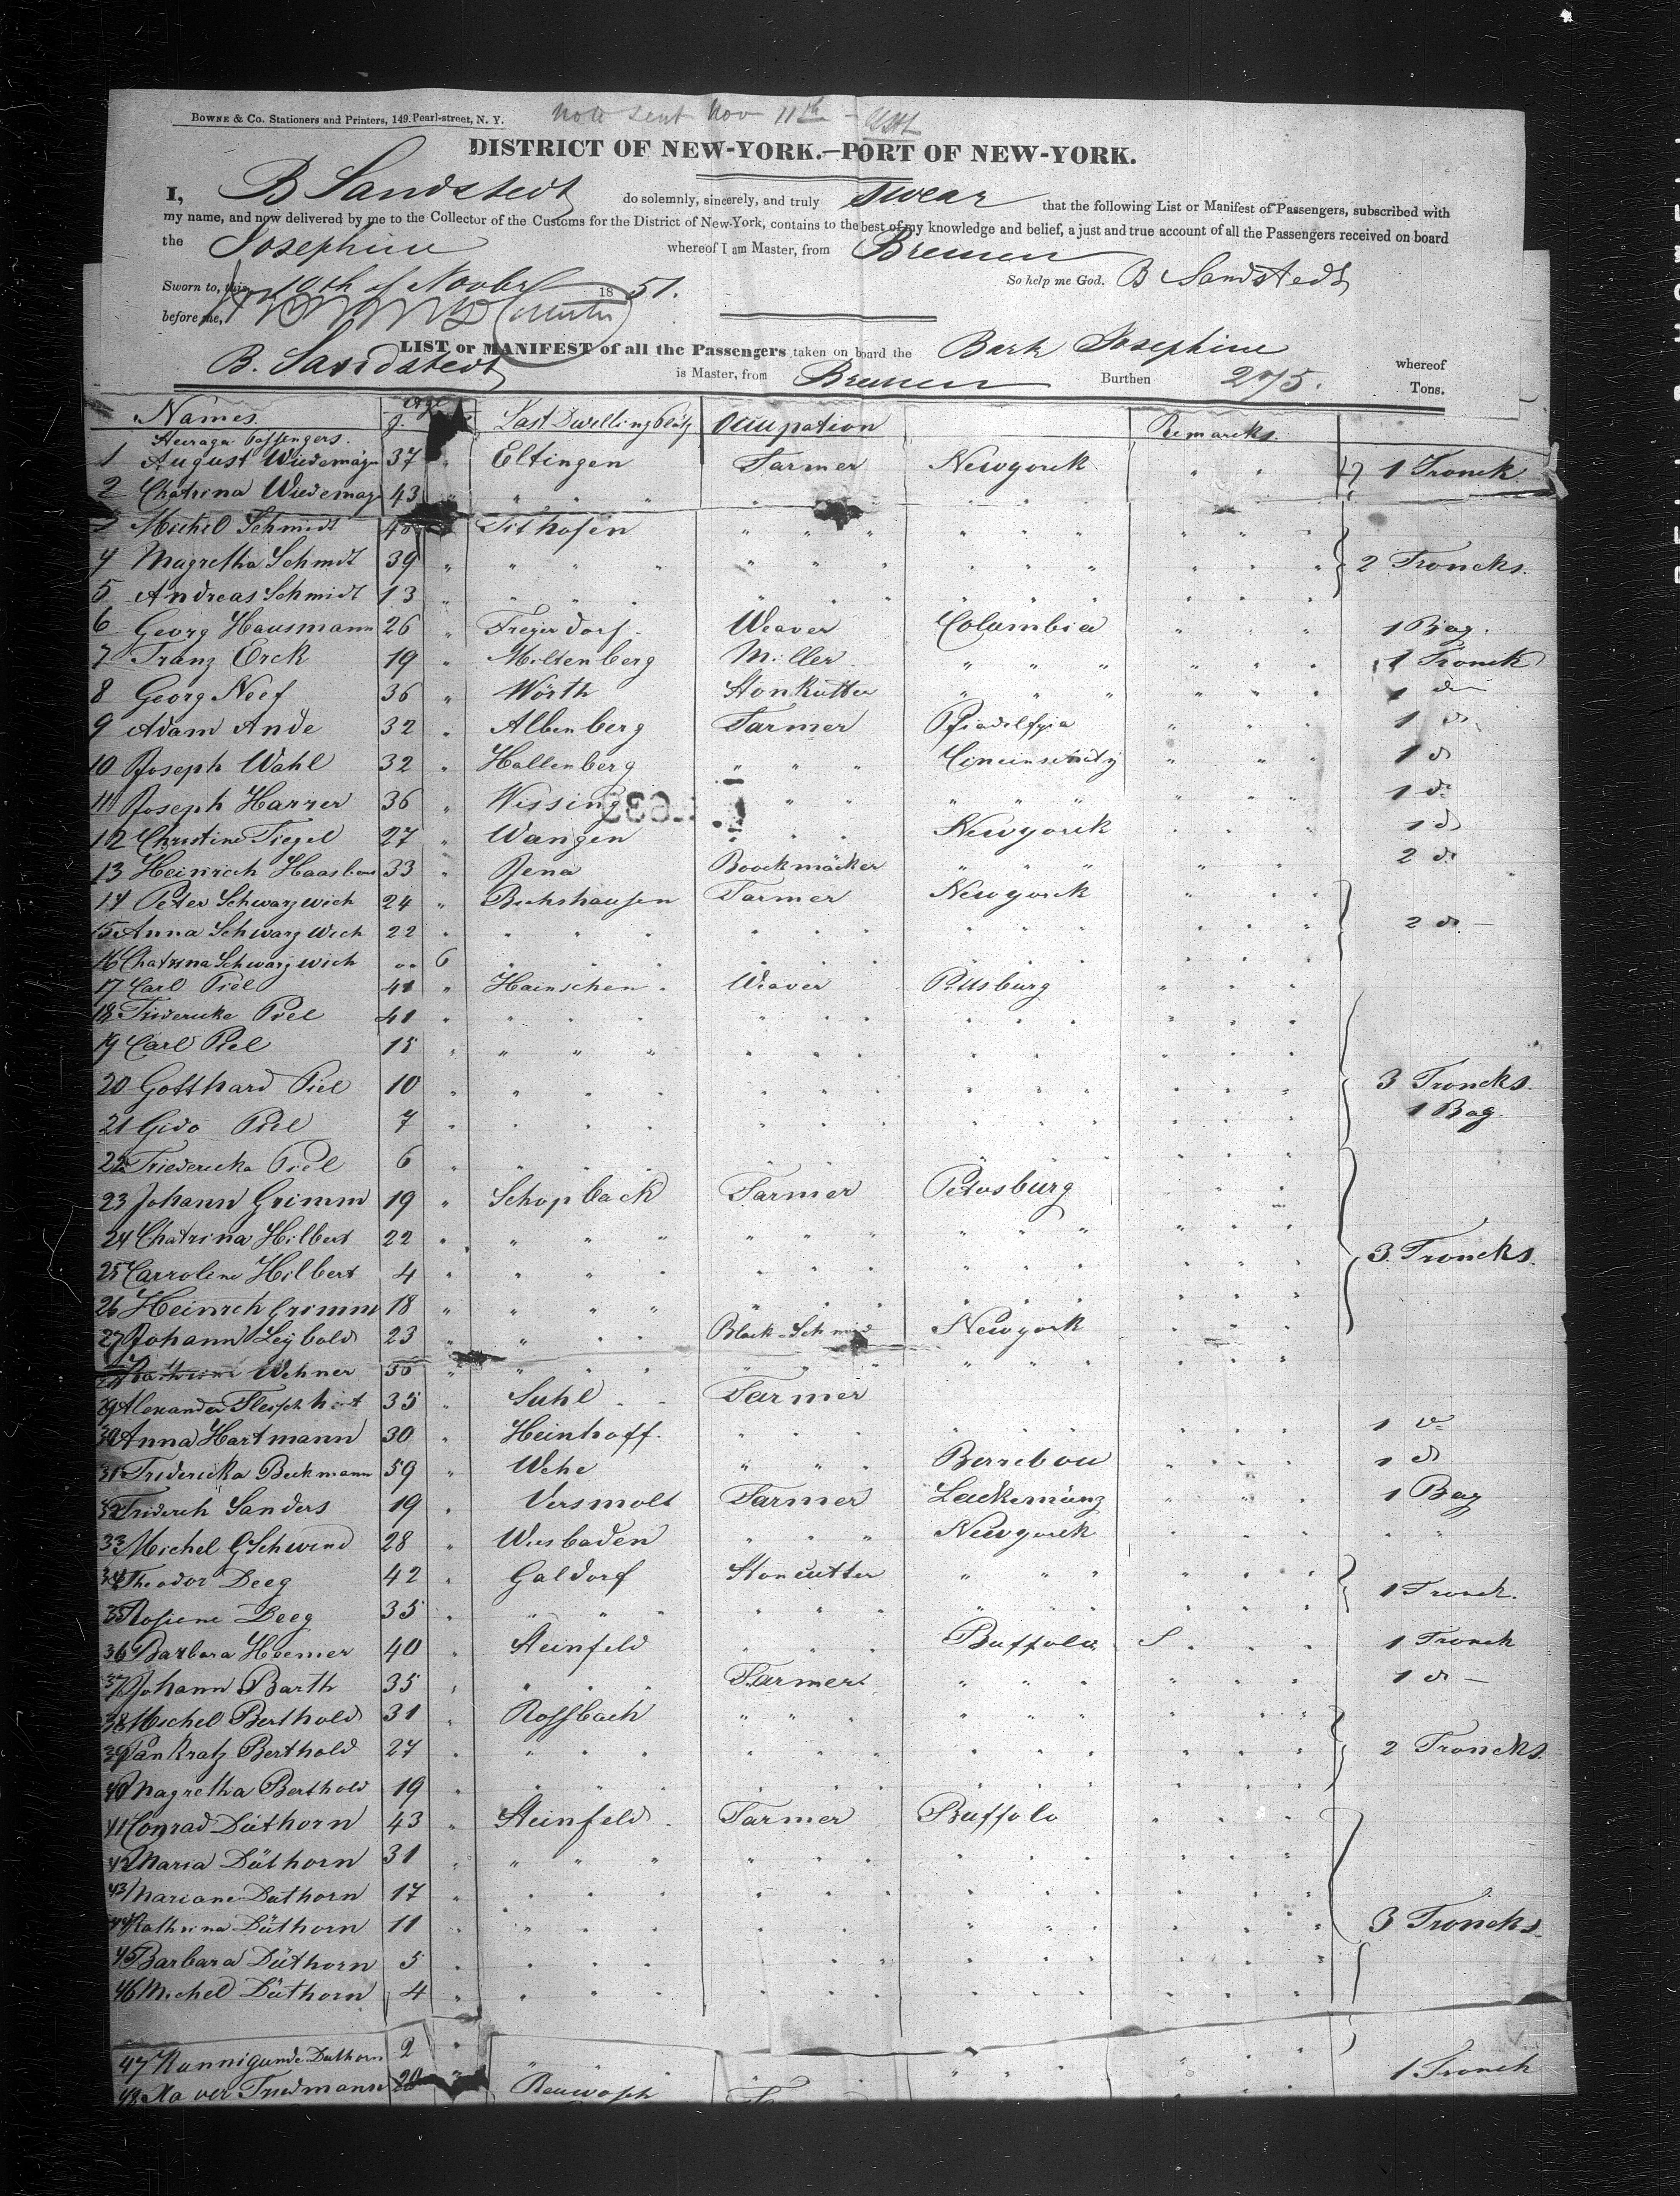 BOWNE & Co. Stationers and Printers, 149 Pearl-street, N. Y.
Note sent Nov 11th -
DISTRICT OF NEW-YORK.—PORT OF NEW-YORK.
I, B Sandstedt do solemnly, sincerely, and truly Swear that the following List or Manifest of Passengers, subscribed with
my name, and now delivered by me to the Collector of the Customs for the District of New-York, contains to the best of my knowledge and belief, a just and true account of all the Passengers received on board
the Josephine whereof I am Master, from Bremen
Sworn to, this 10th of Novbr 1851. So help me God. B Sandstedt
before me,
LIST or MANIFEST of all the Passengers taken on board the Bark Josephine whereof
B. Sandstedt is Master, from Bremen Burthen 275. Tons.
Names. Age Last Dwelling Occupation Remarcks.
Passengers.
1 August 37 " Eltingen Farmer Newyorck " " 1 Tronck.
2 Chatrina 43 " " " "
3 Michel Schmidt " " " " " " " " "
4 Magretha Schmidt 39 " " " " " " " " " " " " " 2 Troncks.
5 Andreas Schmidt 13 " " " " " " " " " " " " "
6 Georg Hausmann 26 " Freyerdorf. Weaver Columbia " " " 1 Bag.
7 Franz Erck 19 " Miltenberg Miller " " " " " " 1 Tronck
8 Georg Neef 36 " Wörth Stonkutter " " " " " " 1 do
9 Adam Ande 32 " Albenberg Farmer " " " 1 do
10 Joseph Wahl 32 " Hallenberg " " " " " " 1 do
11 Joseph Harrer 36 " Wissing " " " " " " " " 1 do
12 Christine Fiegel 27 " Wangen " " " Newyorck " " " 1 do
13 Heinrich 33 " Jena Boockmäcker " " " " " 2 do
14 Peter Schwarzwich 24 " Farmer Newyorck " " "
15 Anna Schwarzwich 22 " " " " " " " " " " " " " 2 do -
16 Chatrina Schwarzwich " 6 " " " " " " " " " " " "
17 Carl Piel 41 " Hainschen. Weaver Pittsburg " " "
18 Friedericke Piel 41 " " " " " " " " " " " " "
19 Carl Piel 15 " " " " " " " " " " " "
20 Gotthard Piel 10 " " " " " " " " " " " " " 3 Troncks.
21 Gido Piel 7 " " " " " " " " " " " " " 1 Bag.
22 Friedericka Piel 6 " " " " " " " " " " " "
23 Johann Grimm 19 " Schopback Farmer Petosburg " "
24 Chatrina Hilbert 22 " " " " " " " " " " " " "
25 Carroline Hilbert 4 " " " " " " " " " " " " " 3 Troncks.
26 Heinrich Grimm 18 " " " " " " " " " " " " "
27 Johann Leybold 23 " " " " Black-Schmid Newyork " " "
Wehner 50 " " " " " " " " " " " " "
29 Alexander 35 " Suhl " " Farmer
30 Anna Hartmann 30 " Heinhoff. " " " " " " " " " 1 do
31 Fridericka Beckmann 59 " Wehe " " " " " " 1 do
32 Friderich Sanders 19 " Versmolt Farmer " " " 1 Bag
33 Michel GSchwend 28 " Wiesbaden " " " Newyorck " " " " "
34 Theodor Deeg 42 " Galdorf Stoncutter " " " " " "
35 Rosiene Deeg 35 " " " " " " " " " " " " " 1 Tronck.
36 Barbara Heemer 40 " Steinfeld " " " Buffolo " " " 1 Tronck
37 Johann Barth 35 " " " " Farmer. " " " " " " 1 do -
38 Michel Berthold 31 " Rossbach " " " " " " " " "
39 Pankratz Berthold 27 " " " " " " " " " " " " " 2 Troncks.
40 Magretha Berthold 19 " " " " " " " " " " " " "
41 Conrad Düthorn 43 " Steinfeld. Farmer Buffolo " " "
42 Maria Düthorn 31 " " " " " " " " " " " " "
43 Mariane Düthorn 17 " " " " " " " " " " " " "
44 Kathrina Düthorn 11 " " " " " " " " " " " " 3 Troncks.
45 Barbara Düthorn 5 " " " " " " " " " " " " "
46 Michel Düthorn 4 " " " " " " " " " " " " "
47 Kunnigunde Düthorn 2 " " " " " " " " " "
48 Xaver Friedmann 20 1 Tronck